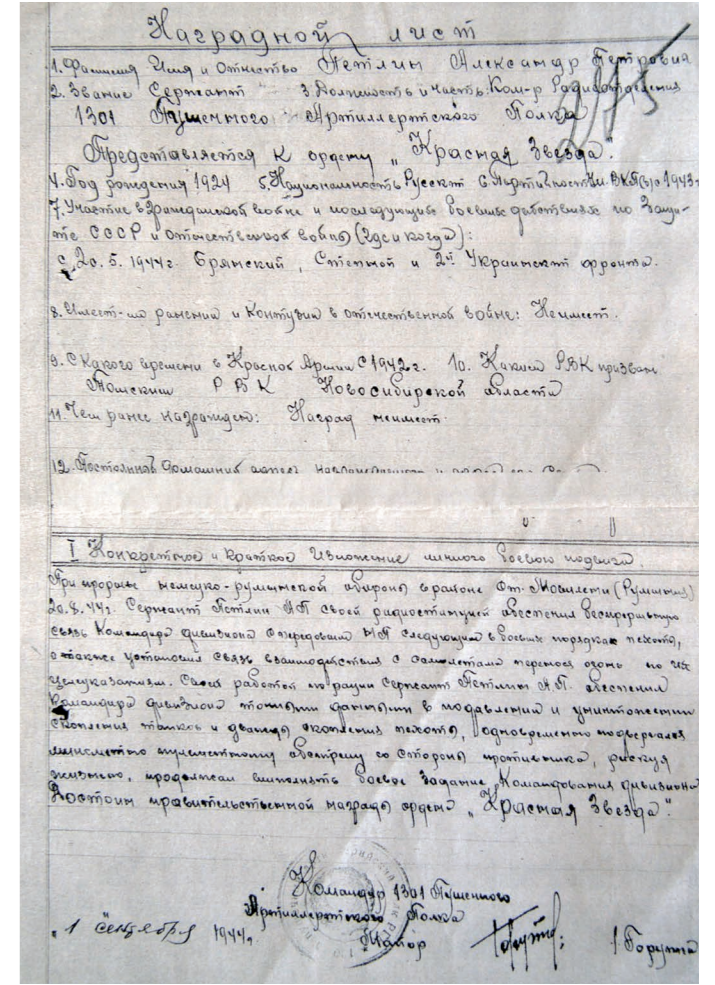 Наградной лист
1. Фамилия Имя и Отчество Петлин Александр Петрович
2. Звание Сержант 3. Должность и часть: Ком-р Радиоотделения
1301 Пушечного Артиллерийского Полка
Представляется к ордену „Красная Звезда".
4. Год рождения 1924 5. Национальность Русский 6. Партийность ВКП(б) с 1943 г
7. Участие в гражданской войне и последующие боевые действиях по защи-
те СССР и отечественной войны (где и когда):
с 20.5.1944г. Брянский, Степной и 2й Украинский фронта.
8. Имеет-ли ранения и контузии в отечественной войне: Неимеет.
9. С какого времени в Красной Армии С 1942 г. 10. Каким РВК призван
Томским РВК Новосибирской области
11. Чем ранее награжден: Наград неимеет.
12. Постоянный домашний
I Конкретное и краткое изложение личного боевого подвига.
При прорыве немецко-румынской обороны в районе От. Мовилени (Румыния)
20.8.44г. Сержант Петлин АП своей радиостанцией обеспечил беспрерывную
связь Командира дивизиона с передовым НП следующим в боевых порядках пехоты,
а также установил связь взаимодействия с самолетами перенося огонь по их
целеуказаниям. Своей работой по рации Сержант Петлин А.П. обеспечил
Командира дивизиона точными данными в подавлении и уничтожении
скопления танков и дважды скопления пехоты, одновременно подвергался
пулеметному обстрелу со стороны противника, рискуя
жизнью, продолжал выполнять боевое задание Командования дивизиона
Достоин правительственной награды ордена „Красная Звезда".
Командир 1301 Пушечного
Артиллерийского Полка
„1 сентября 1944г. Майор